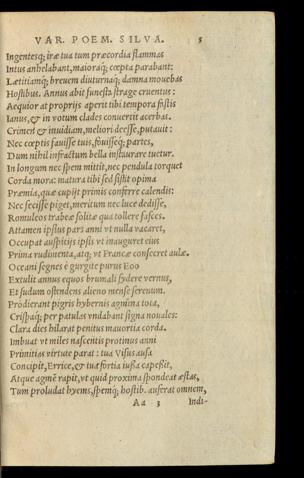 VAR. POEM. SILVA. 5
Ingentesq; iræ tua tum præcordia flammas
Intus anhelabant, maioraq́; cœpta parabant:
Lætitiamq́; breuem diuturnaq́; damna mouebas
Hostibus. Annus abit funesta strage cruentus:
Aequior at proprijs aperit tibi tempora fistis
Ianus, & in votum clades conuertit acerbas.
Crimen & inuidiam, meliori deesse, putauit:
Nec cœptis fauisse tuis, fouisseq́; partes,
Dum nihil infractum bella instaurare tuetur.
In longum nec spem mittit, nec pendula torquet
Corda mora: matura tibi sed sistit opima
Præmia, quæ cupijt primis conferre calendis:
Nec fecisse piget, meritum nec luce dedisse,
Romuleos trabeæ solitæ qua tollere fasces.
Attamen ipsius pars anni vt nulla vacaret,
Occupat auspicijs ipsis vt inauguret eius
Prima rudimenta, atq; vt Francæ consecret aulæ.
Oceani segnes è gurgite purus Eoo
Extulit annus equos brumali sydere vernus,
Et sudum ostendens alieno mense serenum.
Proderant pigris hybernis agmina tota,
Crispaq́; per patulas vndabant signa nouales:
Clara dies hilarat penitus mauortia corda.
Imbuat vt miles nascentis protinus anni
Primitias virtute parat: tua Visus ausa
Concipit, Errice, & tua fortia iussa capessit,
Atque agmē rapit, vt quid proxima spondeat æstas,
Tum proludat hyems, spemq́; hostib. auferat omnem,
Aa 3 Indi-